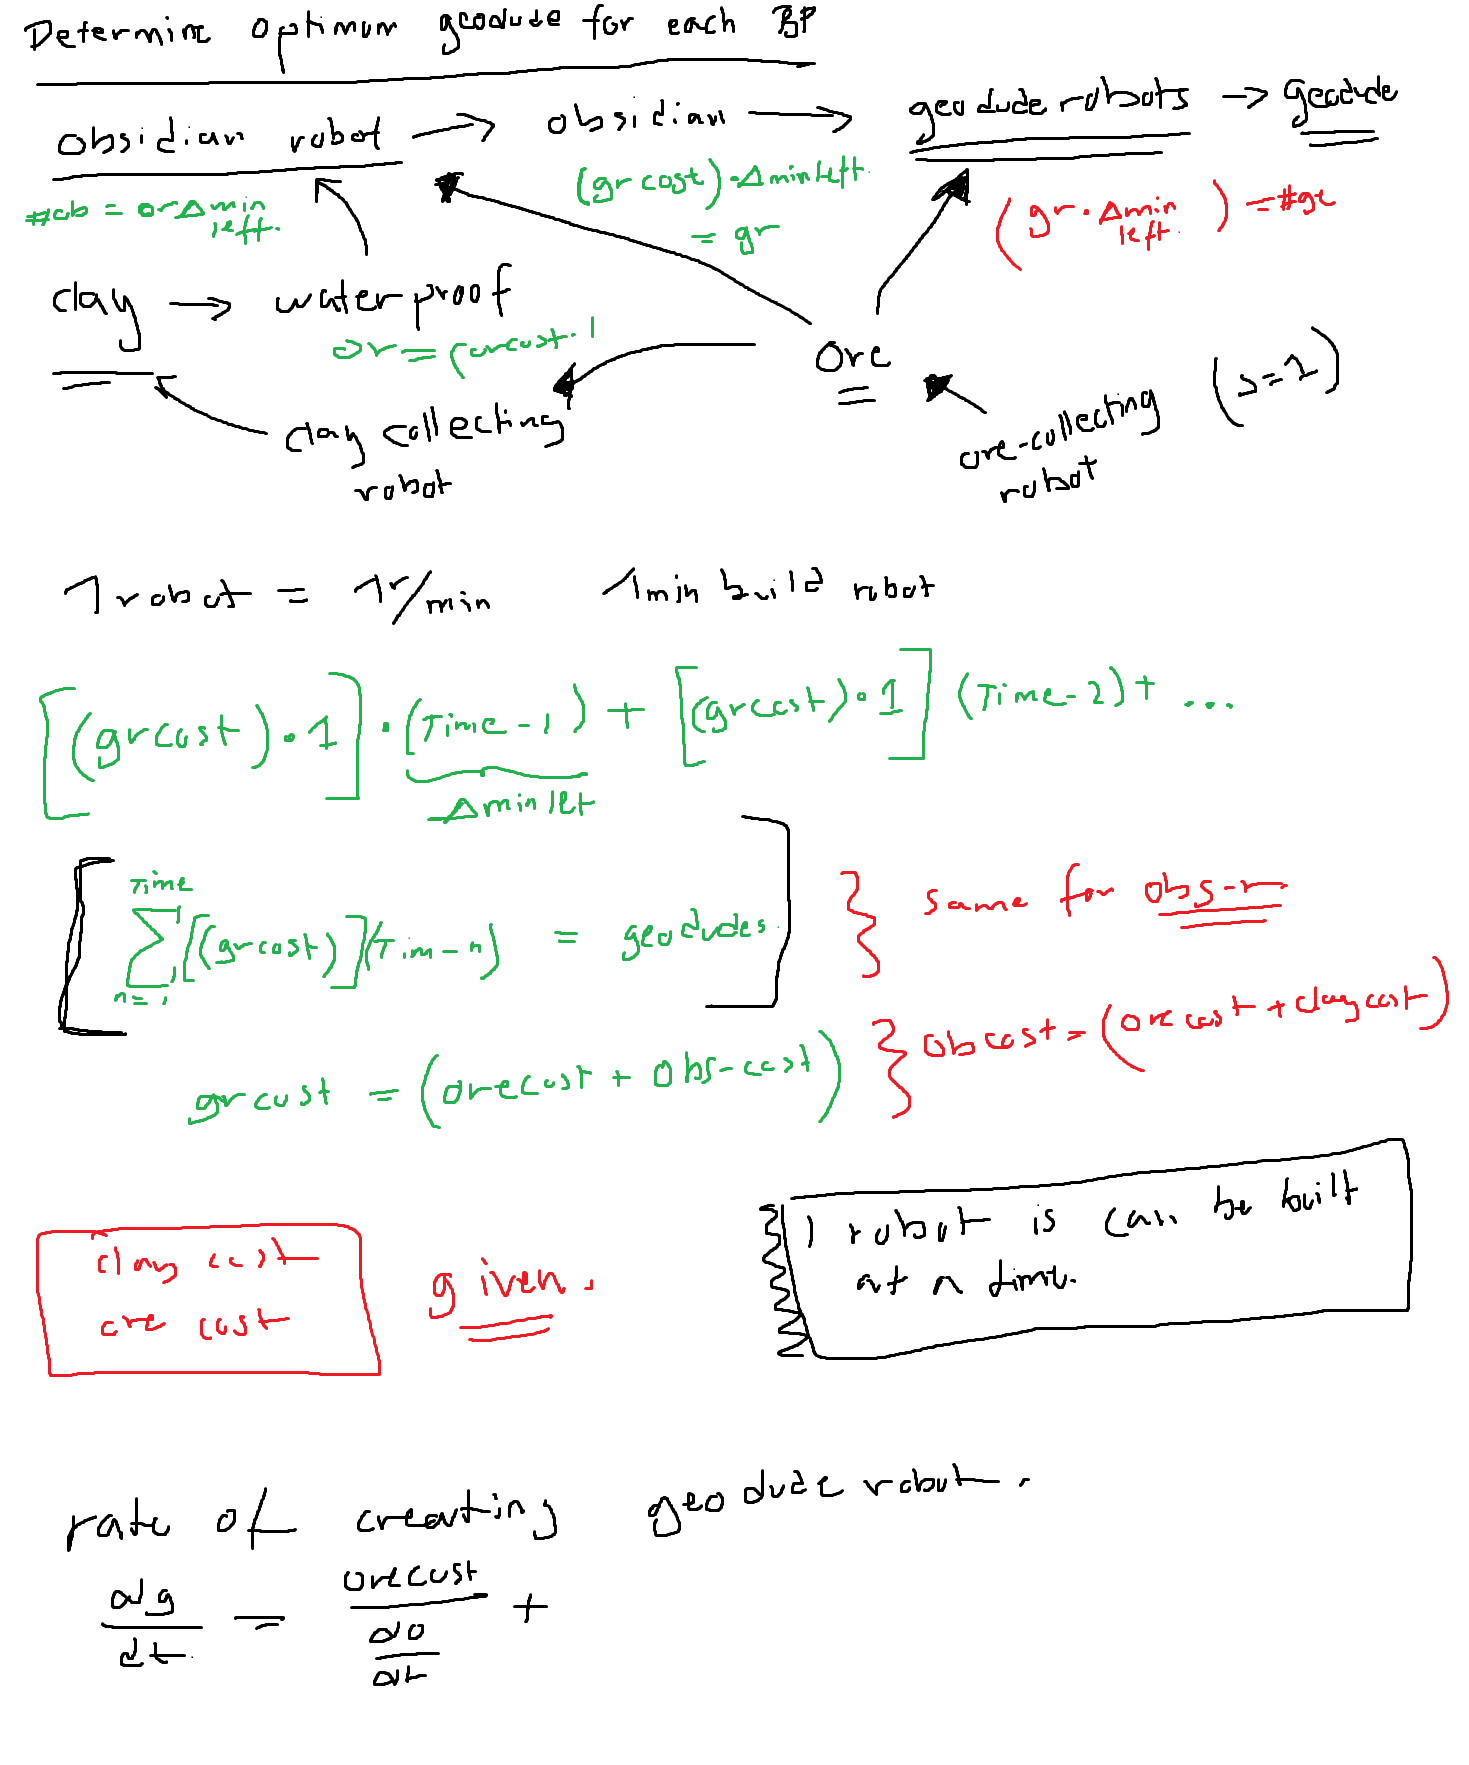 Determine optimum geodude for each BP
obsidian robot → obsidian → geodude robots → geodude
#ob = or Δ min left.
(gr cost) · Δ min left.
= gr
(gr · Δ min left.) = #ge
clay → waterproof
or = (orcost · 1
ore
clay collecting robot
ore-collecting robot (s=1)
1 robot = 1r/min 1 min build robot
[(gr cost) · 1] · (Time - 1) + [(gr cost) · 1] (Time - 2) + ...
Δ min left
Time
∑ [(gr cost)] (Tim - n) = geodudes
n = 1
} same for obs-r
gr cost = (ore cost + obs-cost)
} ob cost = (ore cost + clay cost)
clay cost
ore cost
given.
1 robot is can be built
at a time.
rate of creating geodude robot.
dg/dt = orecost / (do/dt) +